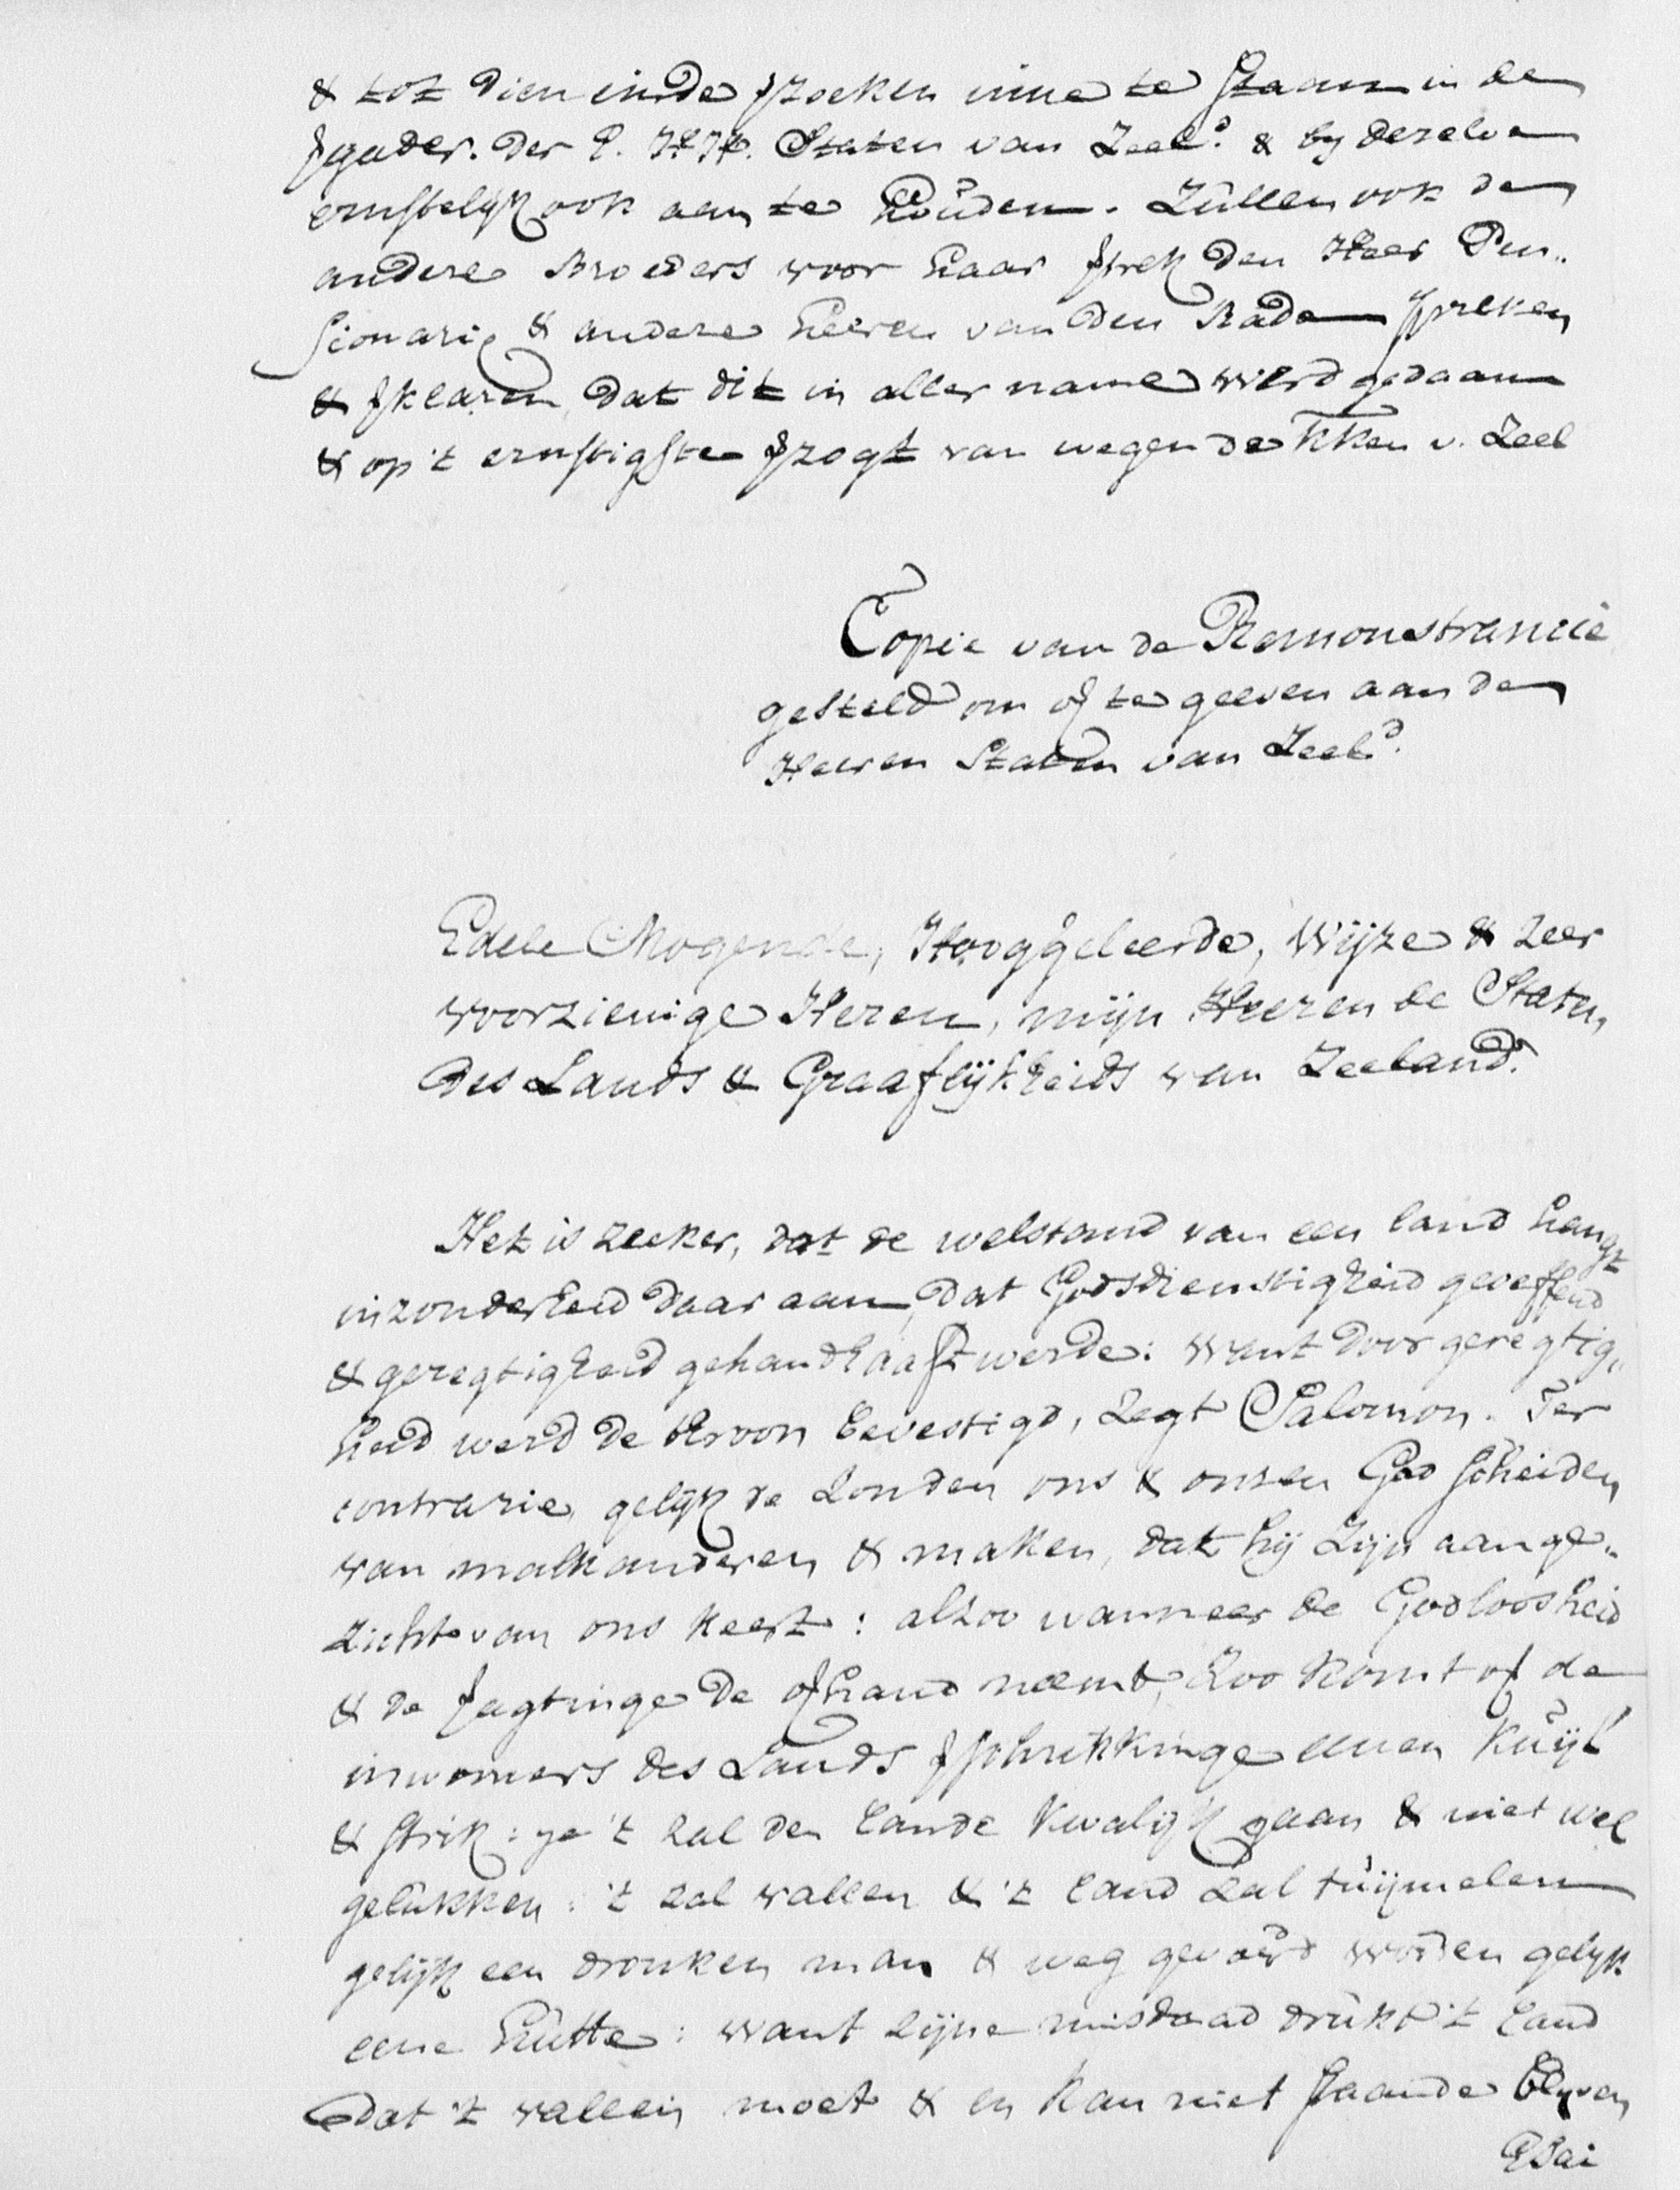 & tot dien einde verzoeken inne te staan in de
vergader. der E. H. H. Staten van Zeel.d & by dezelve
ernstelijk ook aan te houden. Zullen ook de
andere Broeders voor haar vertrek den Heer Pen„
sionaris & andere heeren van den Rade spreken
& verklaren dat dit in aller name werd gedaan
& op 't ernstigste verzogt van wegen de kken v. Zeel
Copie van de Remonstrancie
gesteld om over te geeven aan de
Heeren Staten van Zeel.d
Edele Mogende, Hooggeleerde, Wijze & zeer
voorzienige Heren, mijn Heeren de Staten,
des Lands & Graaflijkheids van Zeeland.
Het is zeeker, dat de welstand van een land hangt
inzonderheid daar aan, dat Godsdienstigheid geoeffend
& geregtigheid gehandhaaft werde: want door geregtig„
heid werd de throon bevestigd, zegt Salomon. Ter
contrarie, gelijk de zonden ons & onsen God scheiden
van malkanderen & maken, dat hij zijn aange„
zichte van ons keert: alzoo wanneer de Godloosheid
& de veragtinge de overhand neemt, zoo komt over de
inwoners des Lands verschrikkinge eenen kuijl
& strik: ja 't zal den lande kwalijk gaan & niet wel
gelukken: 't zal vallen & 't land zal tuijmelen
gelijk een dronken man & weg gevoerd worden gelijk
eene hutte: want zijne misdaad drukt 't land
dat 't vallen moet & en kan niet staande blyven
Esai